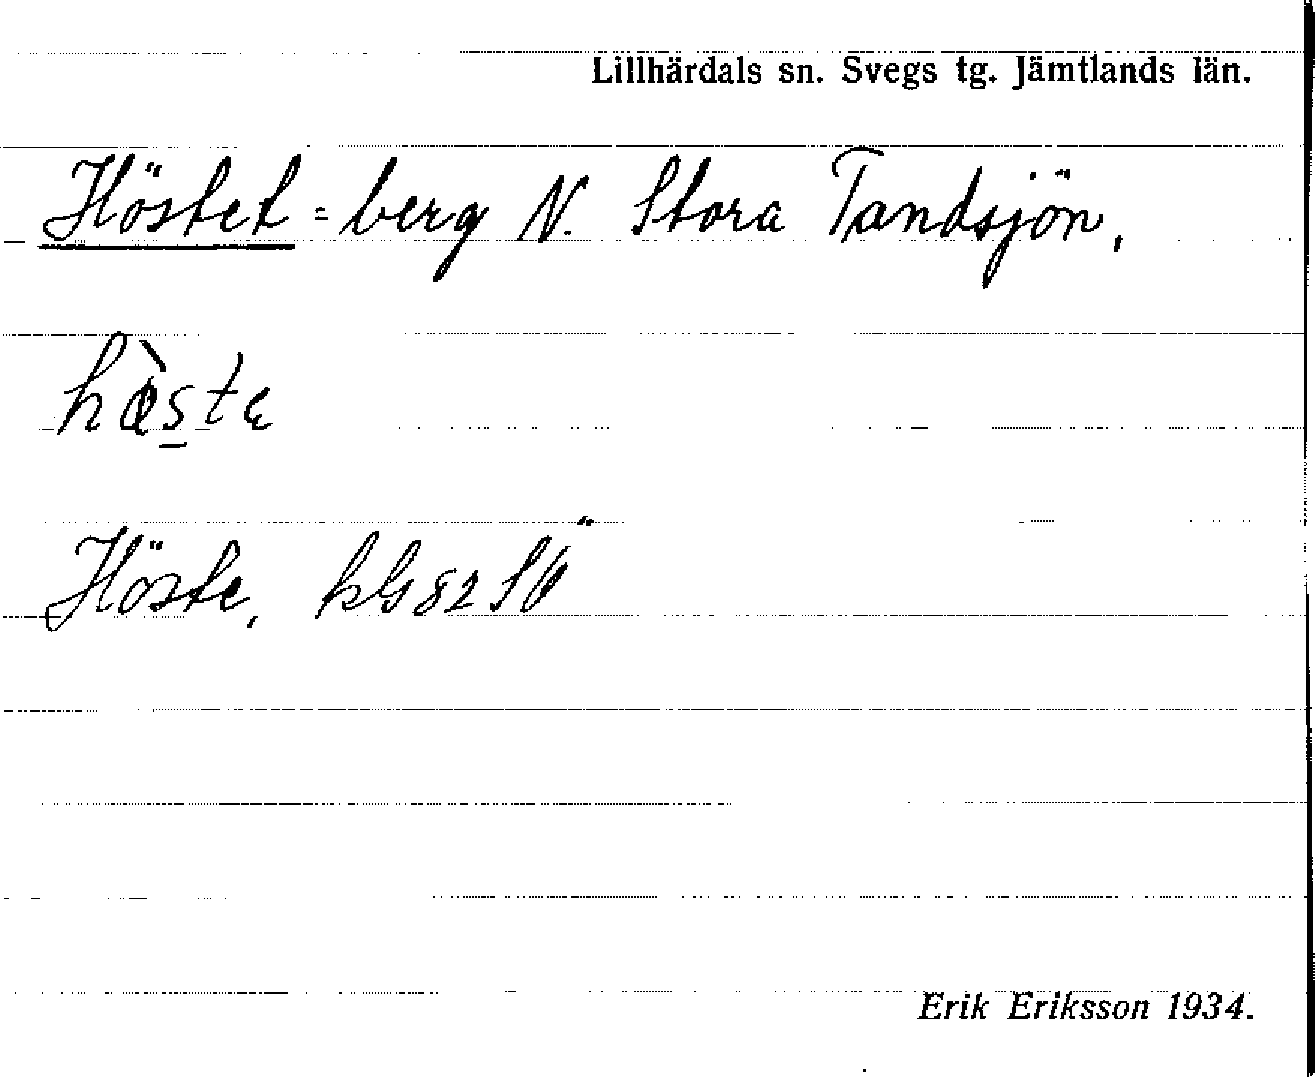 Lillhärdals sn. Svegs tg. Jämtlands län.
Höstet = berg N. Stora Tandsjön,
hàste
Höste, kG82SÖ
Erik Eriksson 1934.